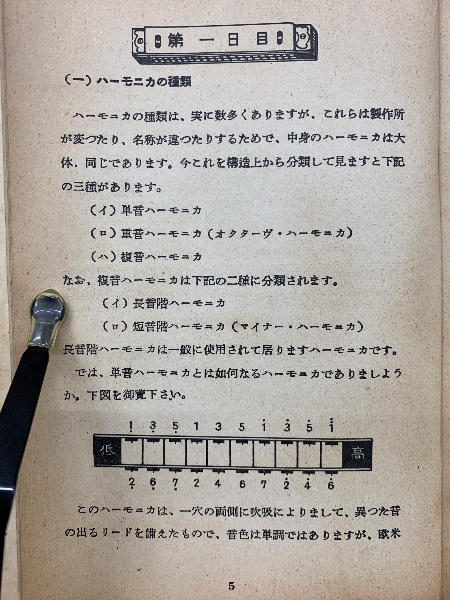 第一日目
(一) ハーモニカの種類
ハーモニカの種類は、実に数多くありますが、これらは製作所
が変つたり、名称が違つたりするためで、中身のハーモニカは大
体、同じであります。今これを構造上から分類して見ますと下記
の三種があります。
(イ) 単音ハーモニカ
(ロ) 重音ハーモニカ (オクターヴ・ハーモニカ)
(ハ) 複音ハーモニカ
なお、複音ハーモニカは下記の二種に分類されます。
(イ) 長音階ハーモニカ
(ロ) 短音階ハーモニカ (マイナー・ハーモニカ)
長音階ハーモニカは一般に使用されて居りますハーモニカです。
では、単音ハーモニカとは如何なるハーモニカでありましよう
か。下図を御覽下さい。
1 3 5 1 3 5 1 3 5 1
低 高
2 6 7 2 4 6 7 2 4 6
このハーモニカは、一穴の両側に吹吸によりまして、異つた音
の出るリードを備えたもので、音色は単調ではありますが、欧米
5